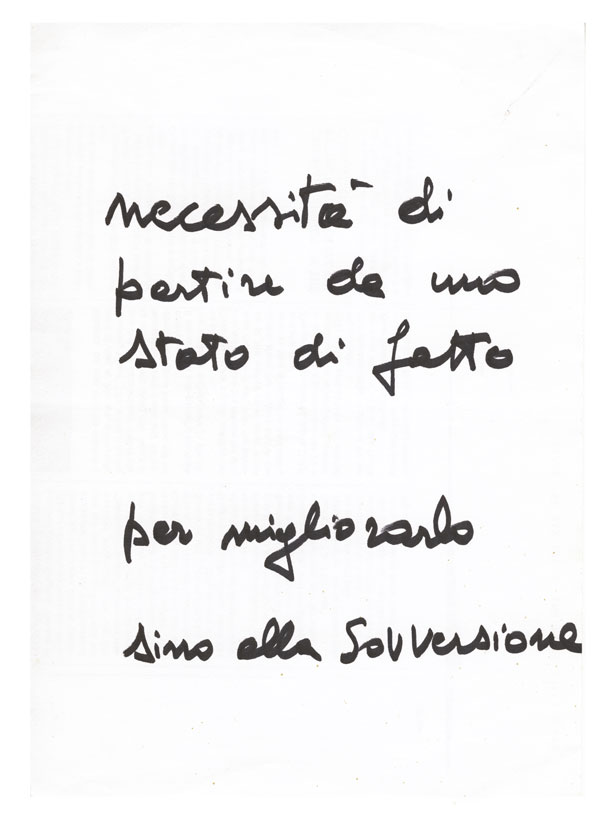 necessità di
partire da uno
stato di fatto
per migliorarlo
sino alla Sovversione